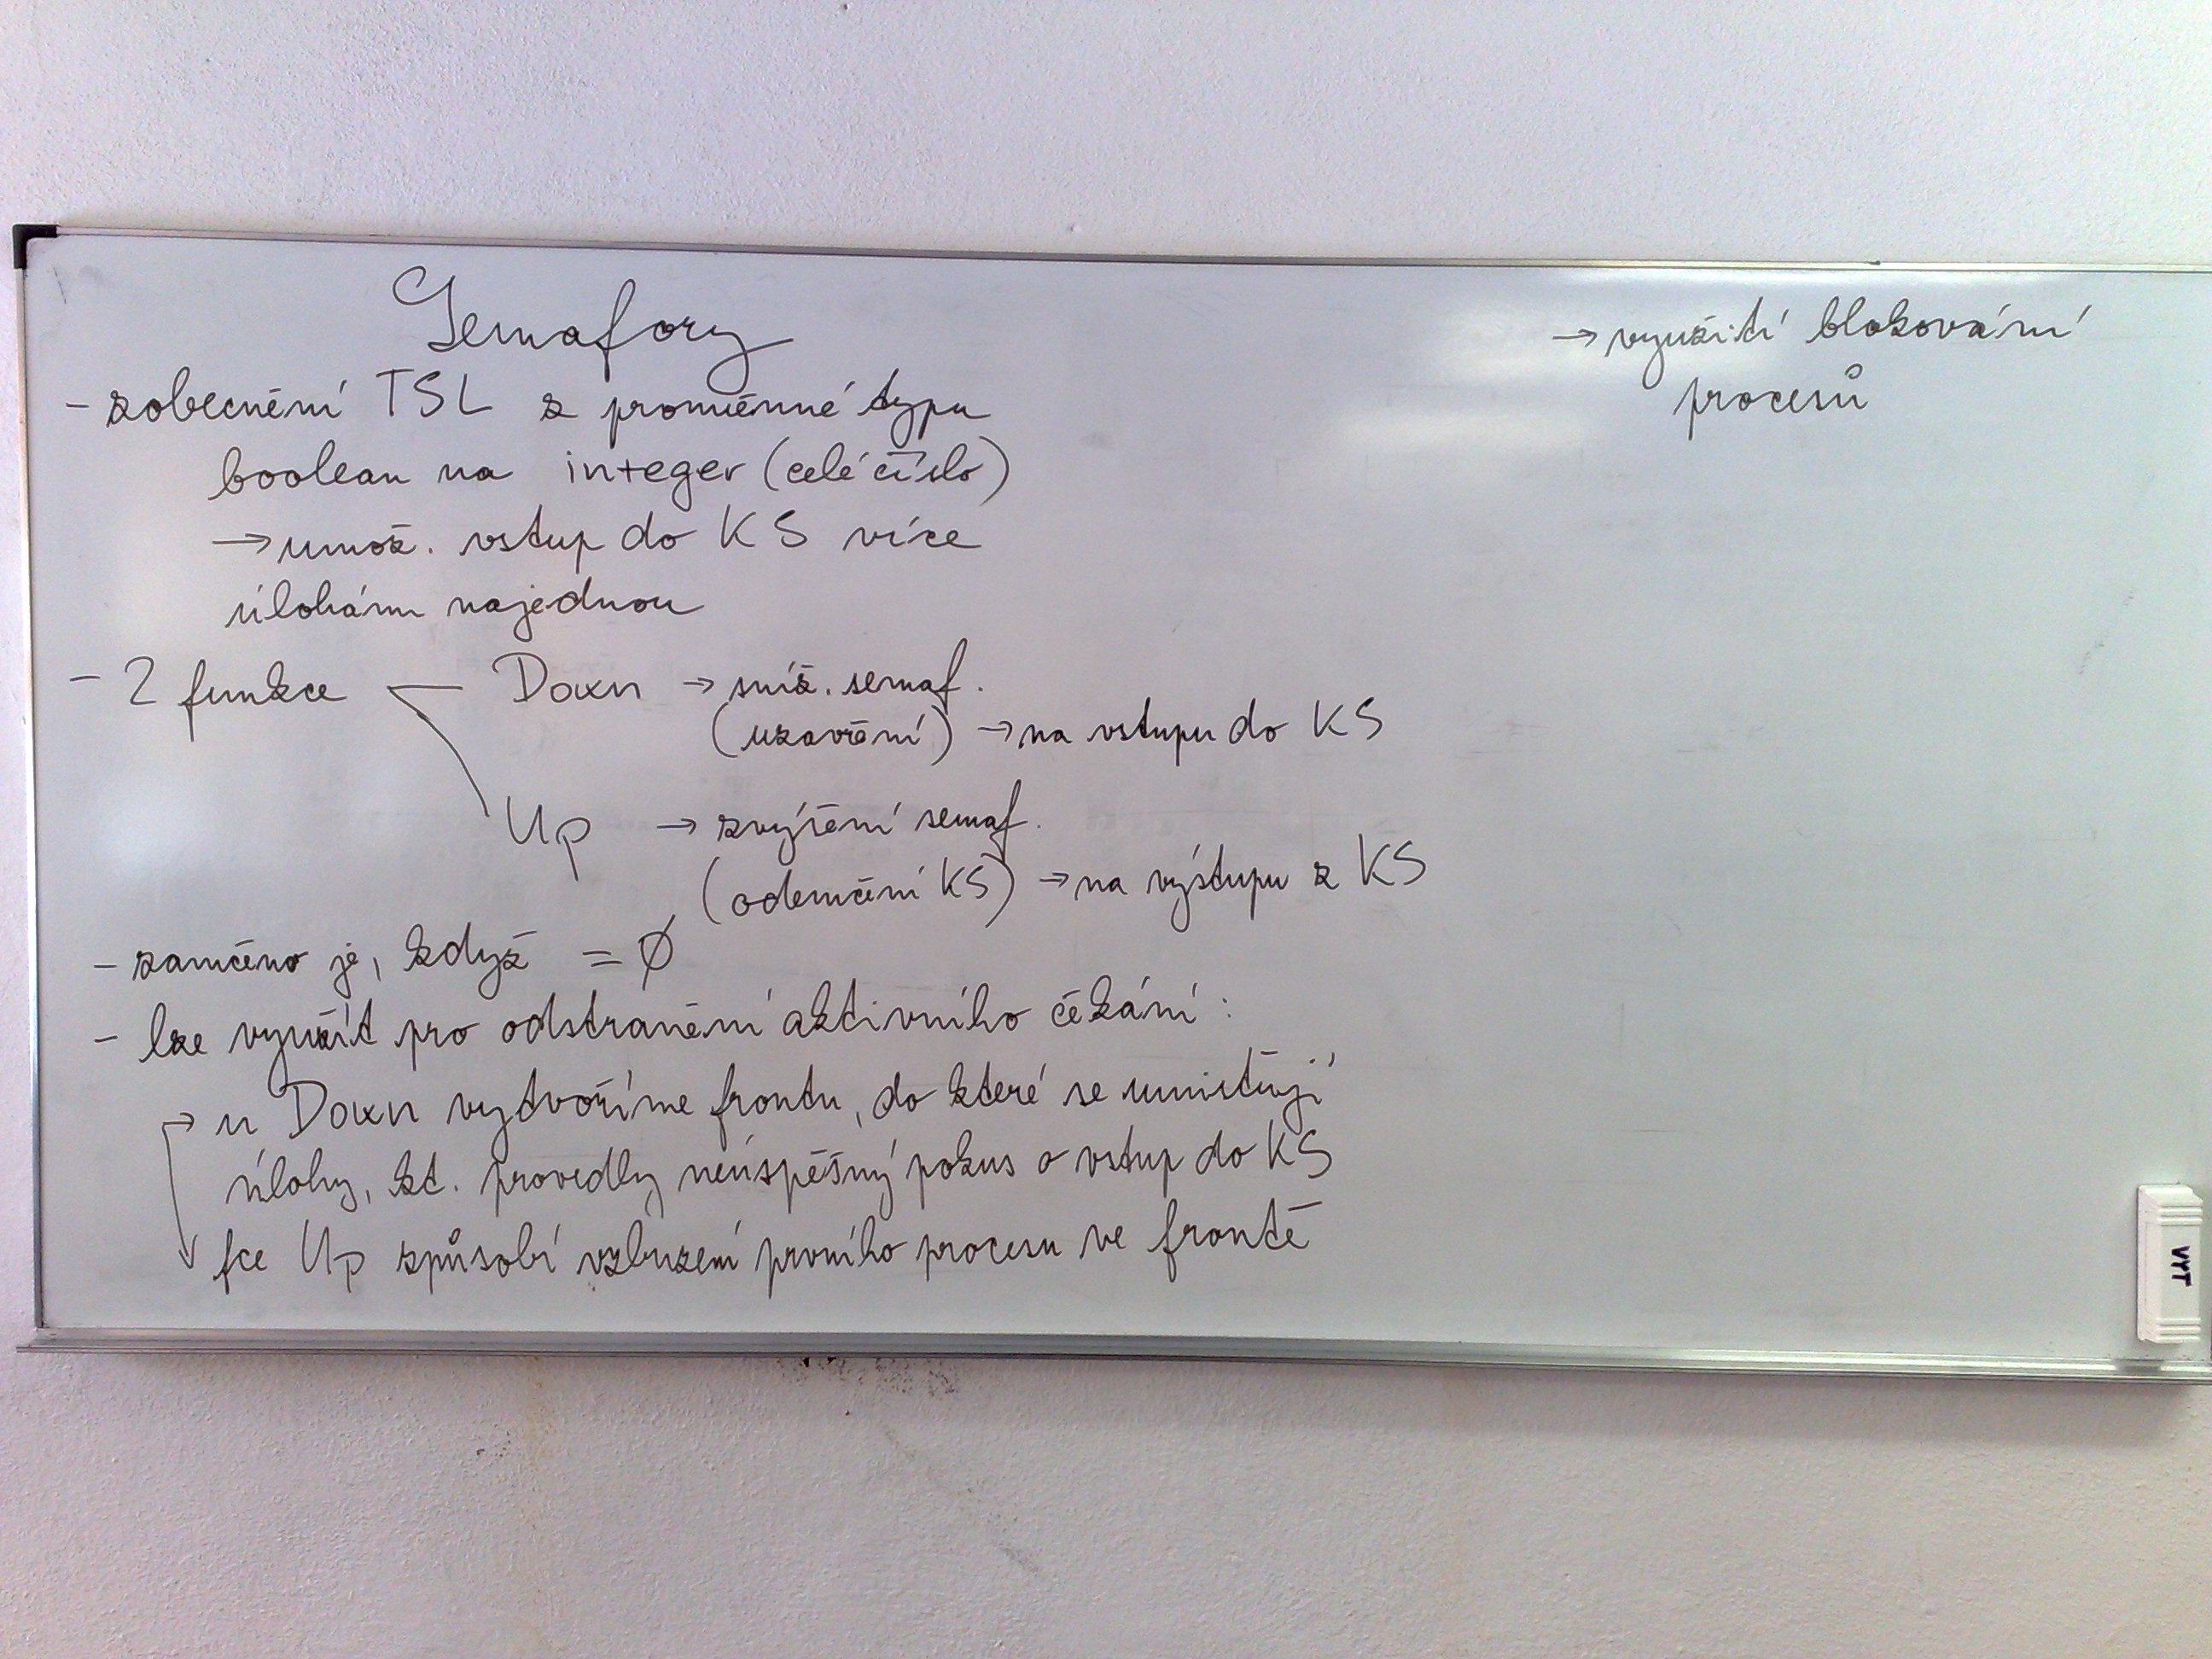 Semafory
- zobecnění TSL z proměnné typu
boolean na integer (celé číslo)
→ umož. vstup do KS více
úlohám najednou
- 2 funkce — Down → sníž. semaf.
(uzavření) → na vstupu do KS
Up → zvýšení semaf.
(odemčení KS) → na výstupu z KS
- zamčeno je, když = Ø
- lze využít pro odstranění aktivního čekání :
→ u Down vytvoříme frontu, do které se umisťují
úlohy, kt. provedly neúspěšný pokus o vstup do KS
fce Up způsobí vzbuzení prvního procesu ve frontě
→ využití blokování
procesů
VYT